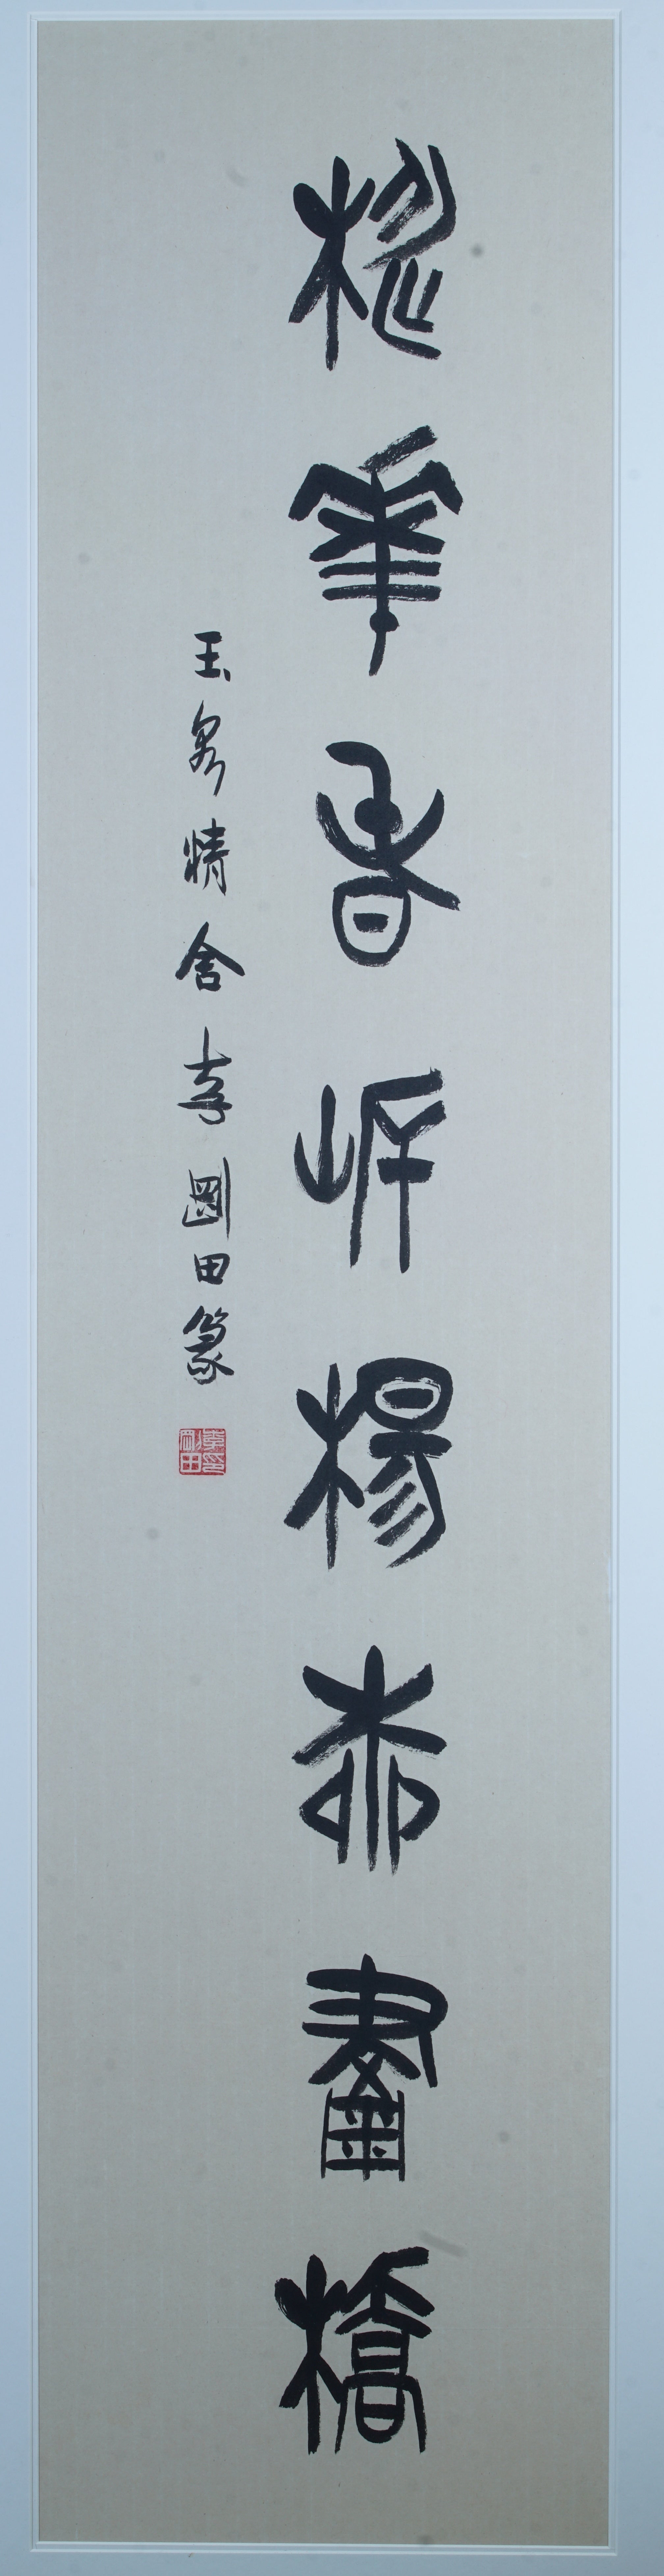 桃華旾岸楊柳畫橋
玉泉精舍李剛田篆
李印剛田